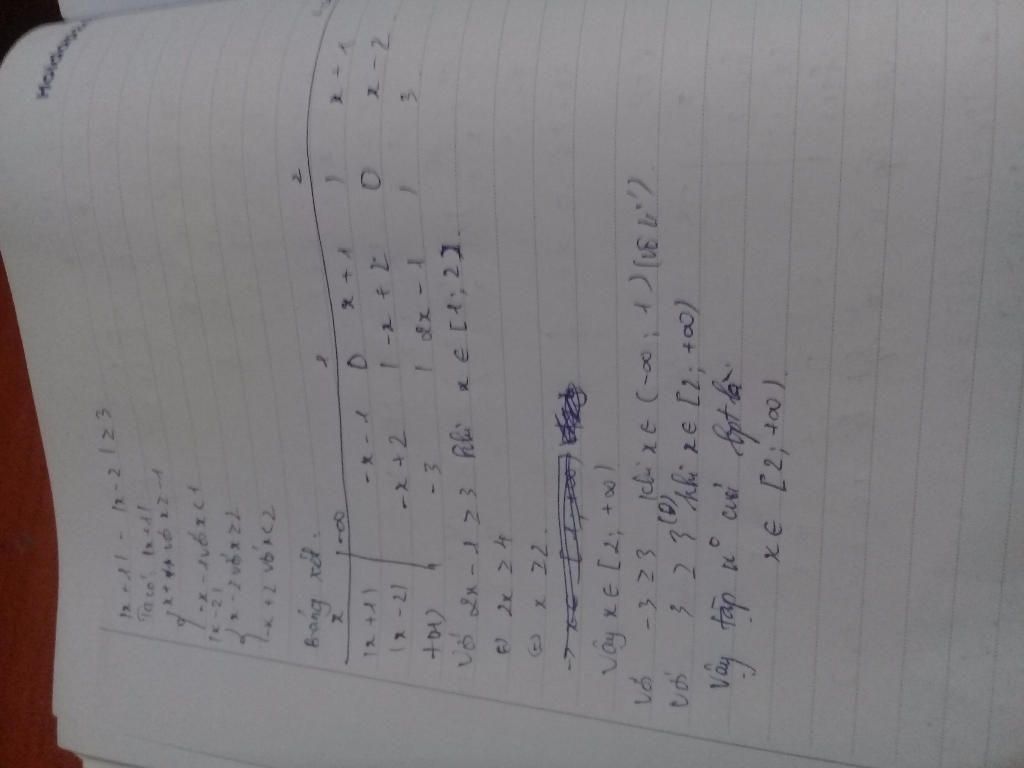 |x+1| - |x-2| ≥ 3
Ta có: |x+1|
x+1 với x ≥ -1
-x-1 với x < 1
|x-2|
x-2 với x ≥ 2
-x+2 với x < 2
Bảng xét.
x -∞ 1 2
|x+1| -x-1 0 x+1 | x+1
|x-2| -x+2 | -x+2 0 x-2
f(x) -3 | 2x-1 | 3
Với 2x-1 ≥ 3 khi x ∈ [1; 2]
⇔ 2x ≥ 4
⇔ x ≥ 2
Vậy x ∈ [2; +∞)
Với -3 ≥ 3 khi x ∈ (-∞; 1)
Với 3 ≥ 3 khi x ∈ [2; +∞)
Vậy tập n° của bpt là
x ∈ [2; +∞)